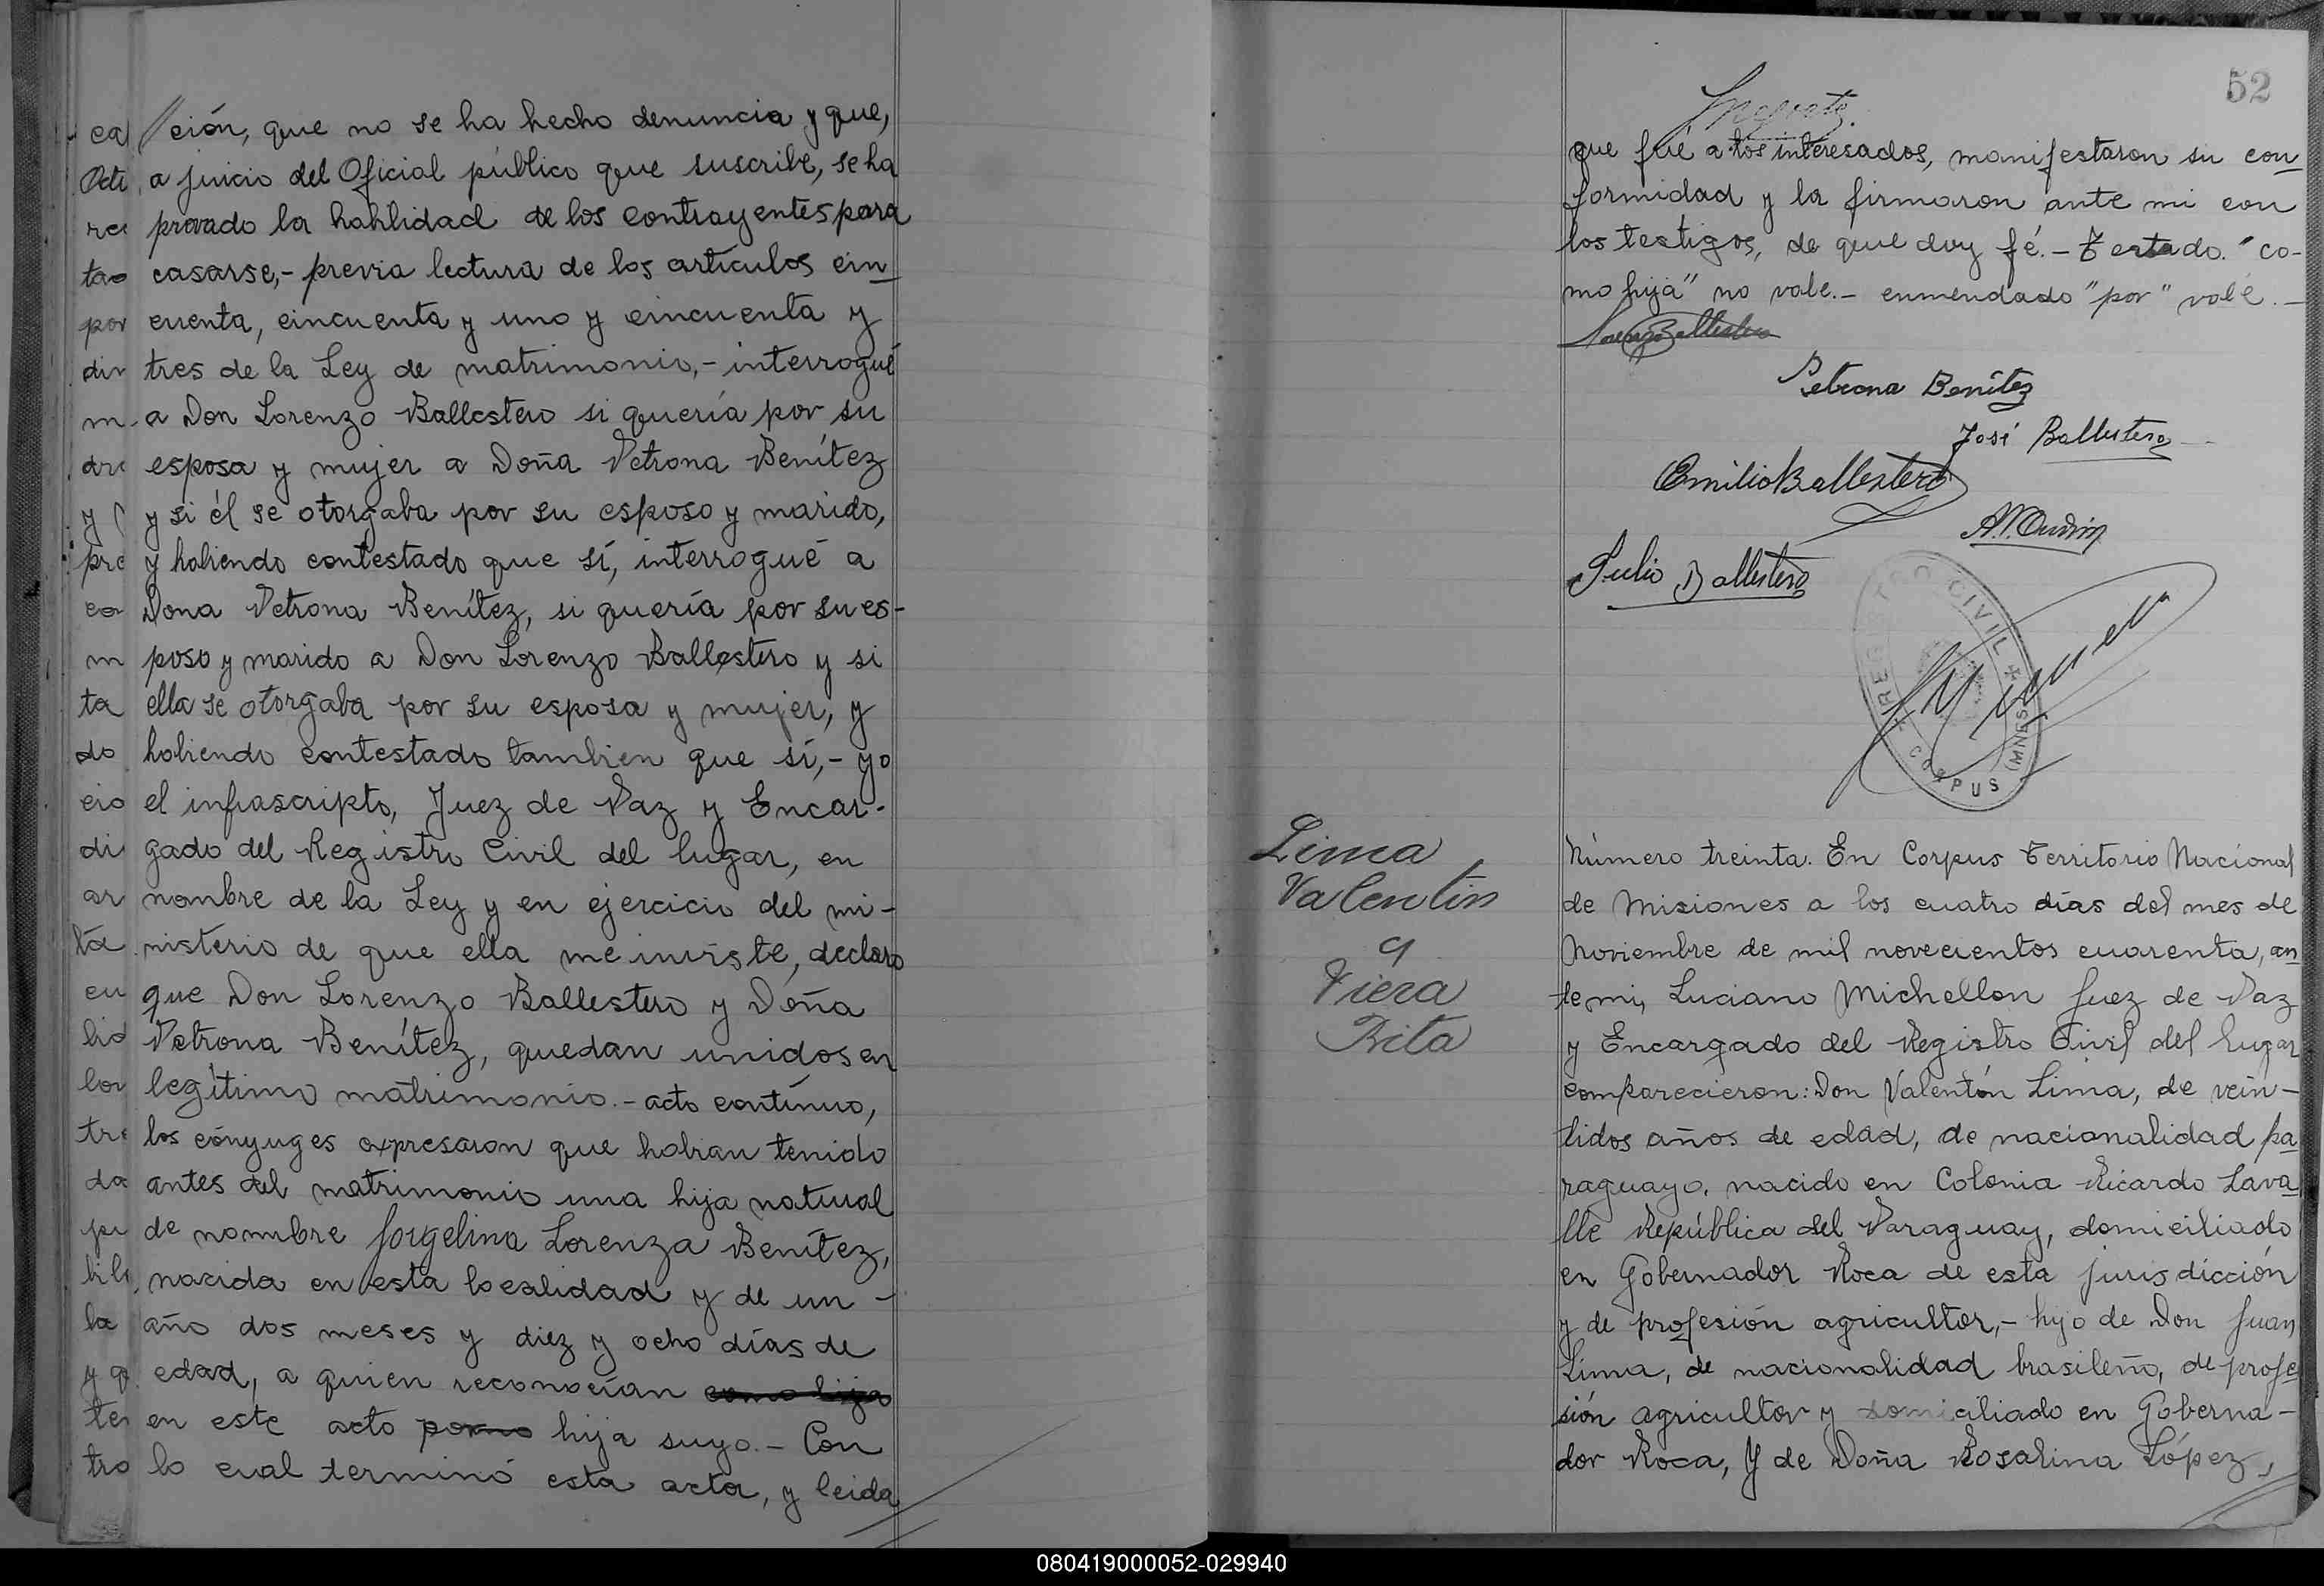 //ción, que no se ha hecho denuncia y que,
a juicio del Oficial público que suscribe, se ha
provado la habilidad de los contrayentes para
casarse,- previa lectura de los artículos cin
cuenta, cincuenta y uno y cincuenta y
tres de la Ley de matrimonio,- interrogué
a Don Lorenzo Ballestero si quería por su
esposa y mujer a Doña Petrona Benítez
y si él se otorgaba por su esposo y marido,
y habiendo contestado que sí, interrogué a
Dona Petrona Benítez, si quería por su es-
poso y marido a Don Lorenzo Ballestero y si
ella se otorgaba por su esposa y mujer, y
habiendo contestado tambien que sí,- yo
el infrascripto, Juez de Paz y Encar-
gado del Registro Civil del lugar, en
nombre de la Ley y en ejercicio del mi-
nisterio de que ella me inviste, declaro
que Don Lorenzo Ballestero y Doña
Petrona Benítez, quedan unidos en
legítimo matrimonio.- acto contínuo,
los cónyuges expresaron que habian tenido
antes del matrimonio una hija natural
de nombre Jorgelina Lorenza Benítez,
nacida en esta localidad y de un -
año dos meses y diez y ocho días de
edad, a quien reconocían como hija
en este acto por hija suya.- Con
lo cual terminó esta acta, y leida
ca
Octu
ta
por
dir
m
y
pro
m
ta
do
cio
di
ar
ta
en
lid
tre
da
bili
la
y q
ter
tro
52
que fué a los interesados, manifestaron su con
formidad y la firmaron ante mi con
los testigos, de que doy fé.- Testado. "co-
mo hija" no vale.- enmendado "por" vale.-
Lorenzo Ballestero
Petrona Benítez
José Ballestero
Emilio Ballestero
Julio Ballestero
REGISTRO CIVIL
CORPUS (MNES)
Lima
Valentín
q
Viera
Rita
Número treinta. En Corpus Territorio Nacional
de Misiones a los cuatro días del mes de
Noviembre de mil novecientos cuarenta, an
te mi, Luciano Michellon Juez de Paz
y Encargado del Registro Civil del lugar
comparecieron: Don Valentín Lima, de vein-
tidos años de edad, de nacionalidad pa
raguayo, nacido en Colonia Ricardo Lava
lle República del Paraguay, domiciliado
en Gobernador Roca de esta jurisdicción
y de profesión agricultor,- hijo de Don Juan
Lima, de nacionalidad brasileño, de profe
sión agricultor y domiciliado en Goberna-
dor Roca, y de Doña Rosalina López,
080419000052-029940